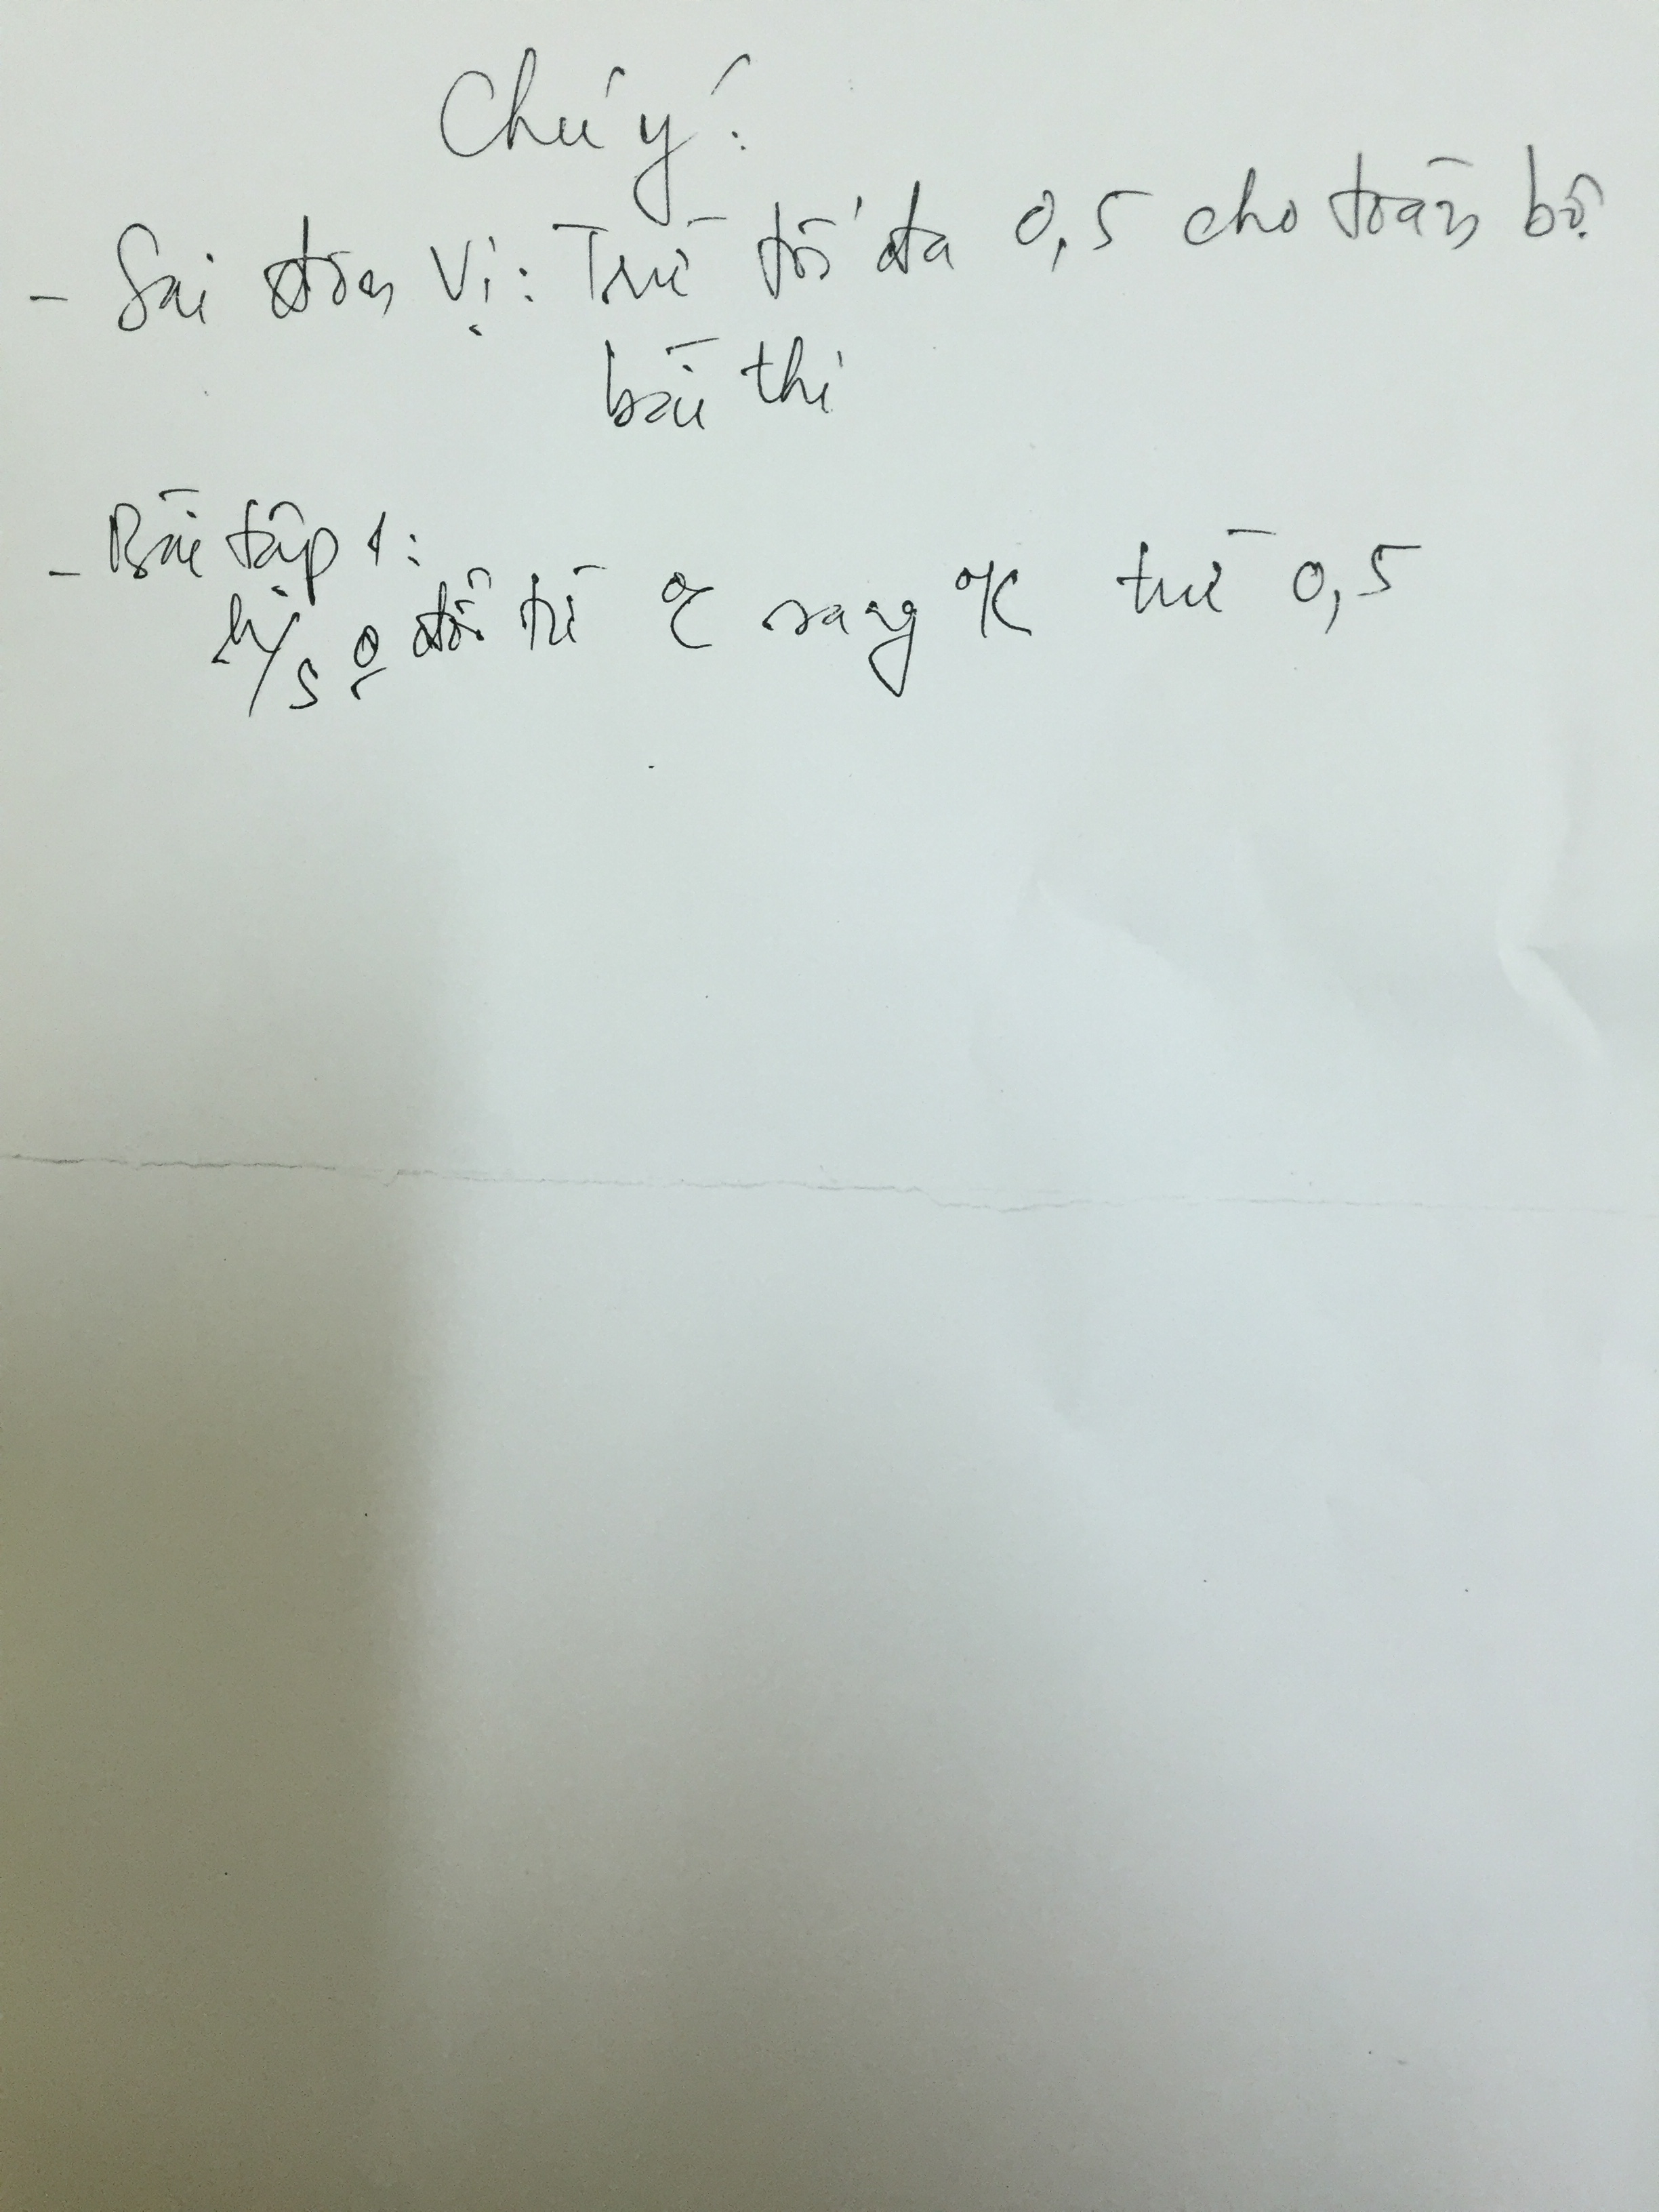 Chú ý:
- Sai đơn vị: Trừ tối đa 0,5 cho toàn bộ
bài thi
- Bài tập 1:
h/s 0 đổi từ °C sang °K trừ 0,5